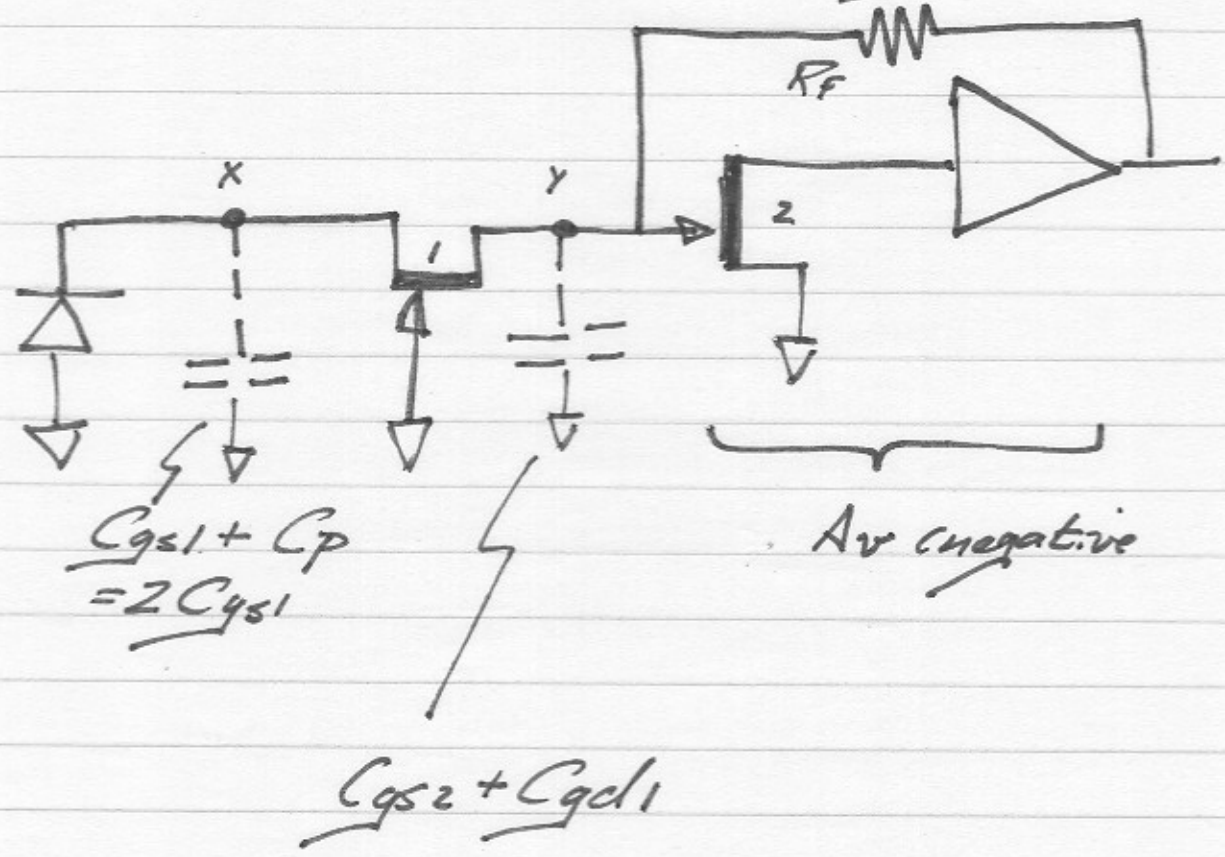 RF
X
Y
1
2
Cgs1 + Cp
= 2Cgs1
Av (negative
Cgs2 + Cgd1